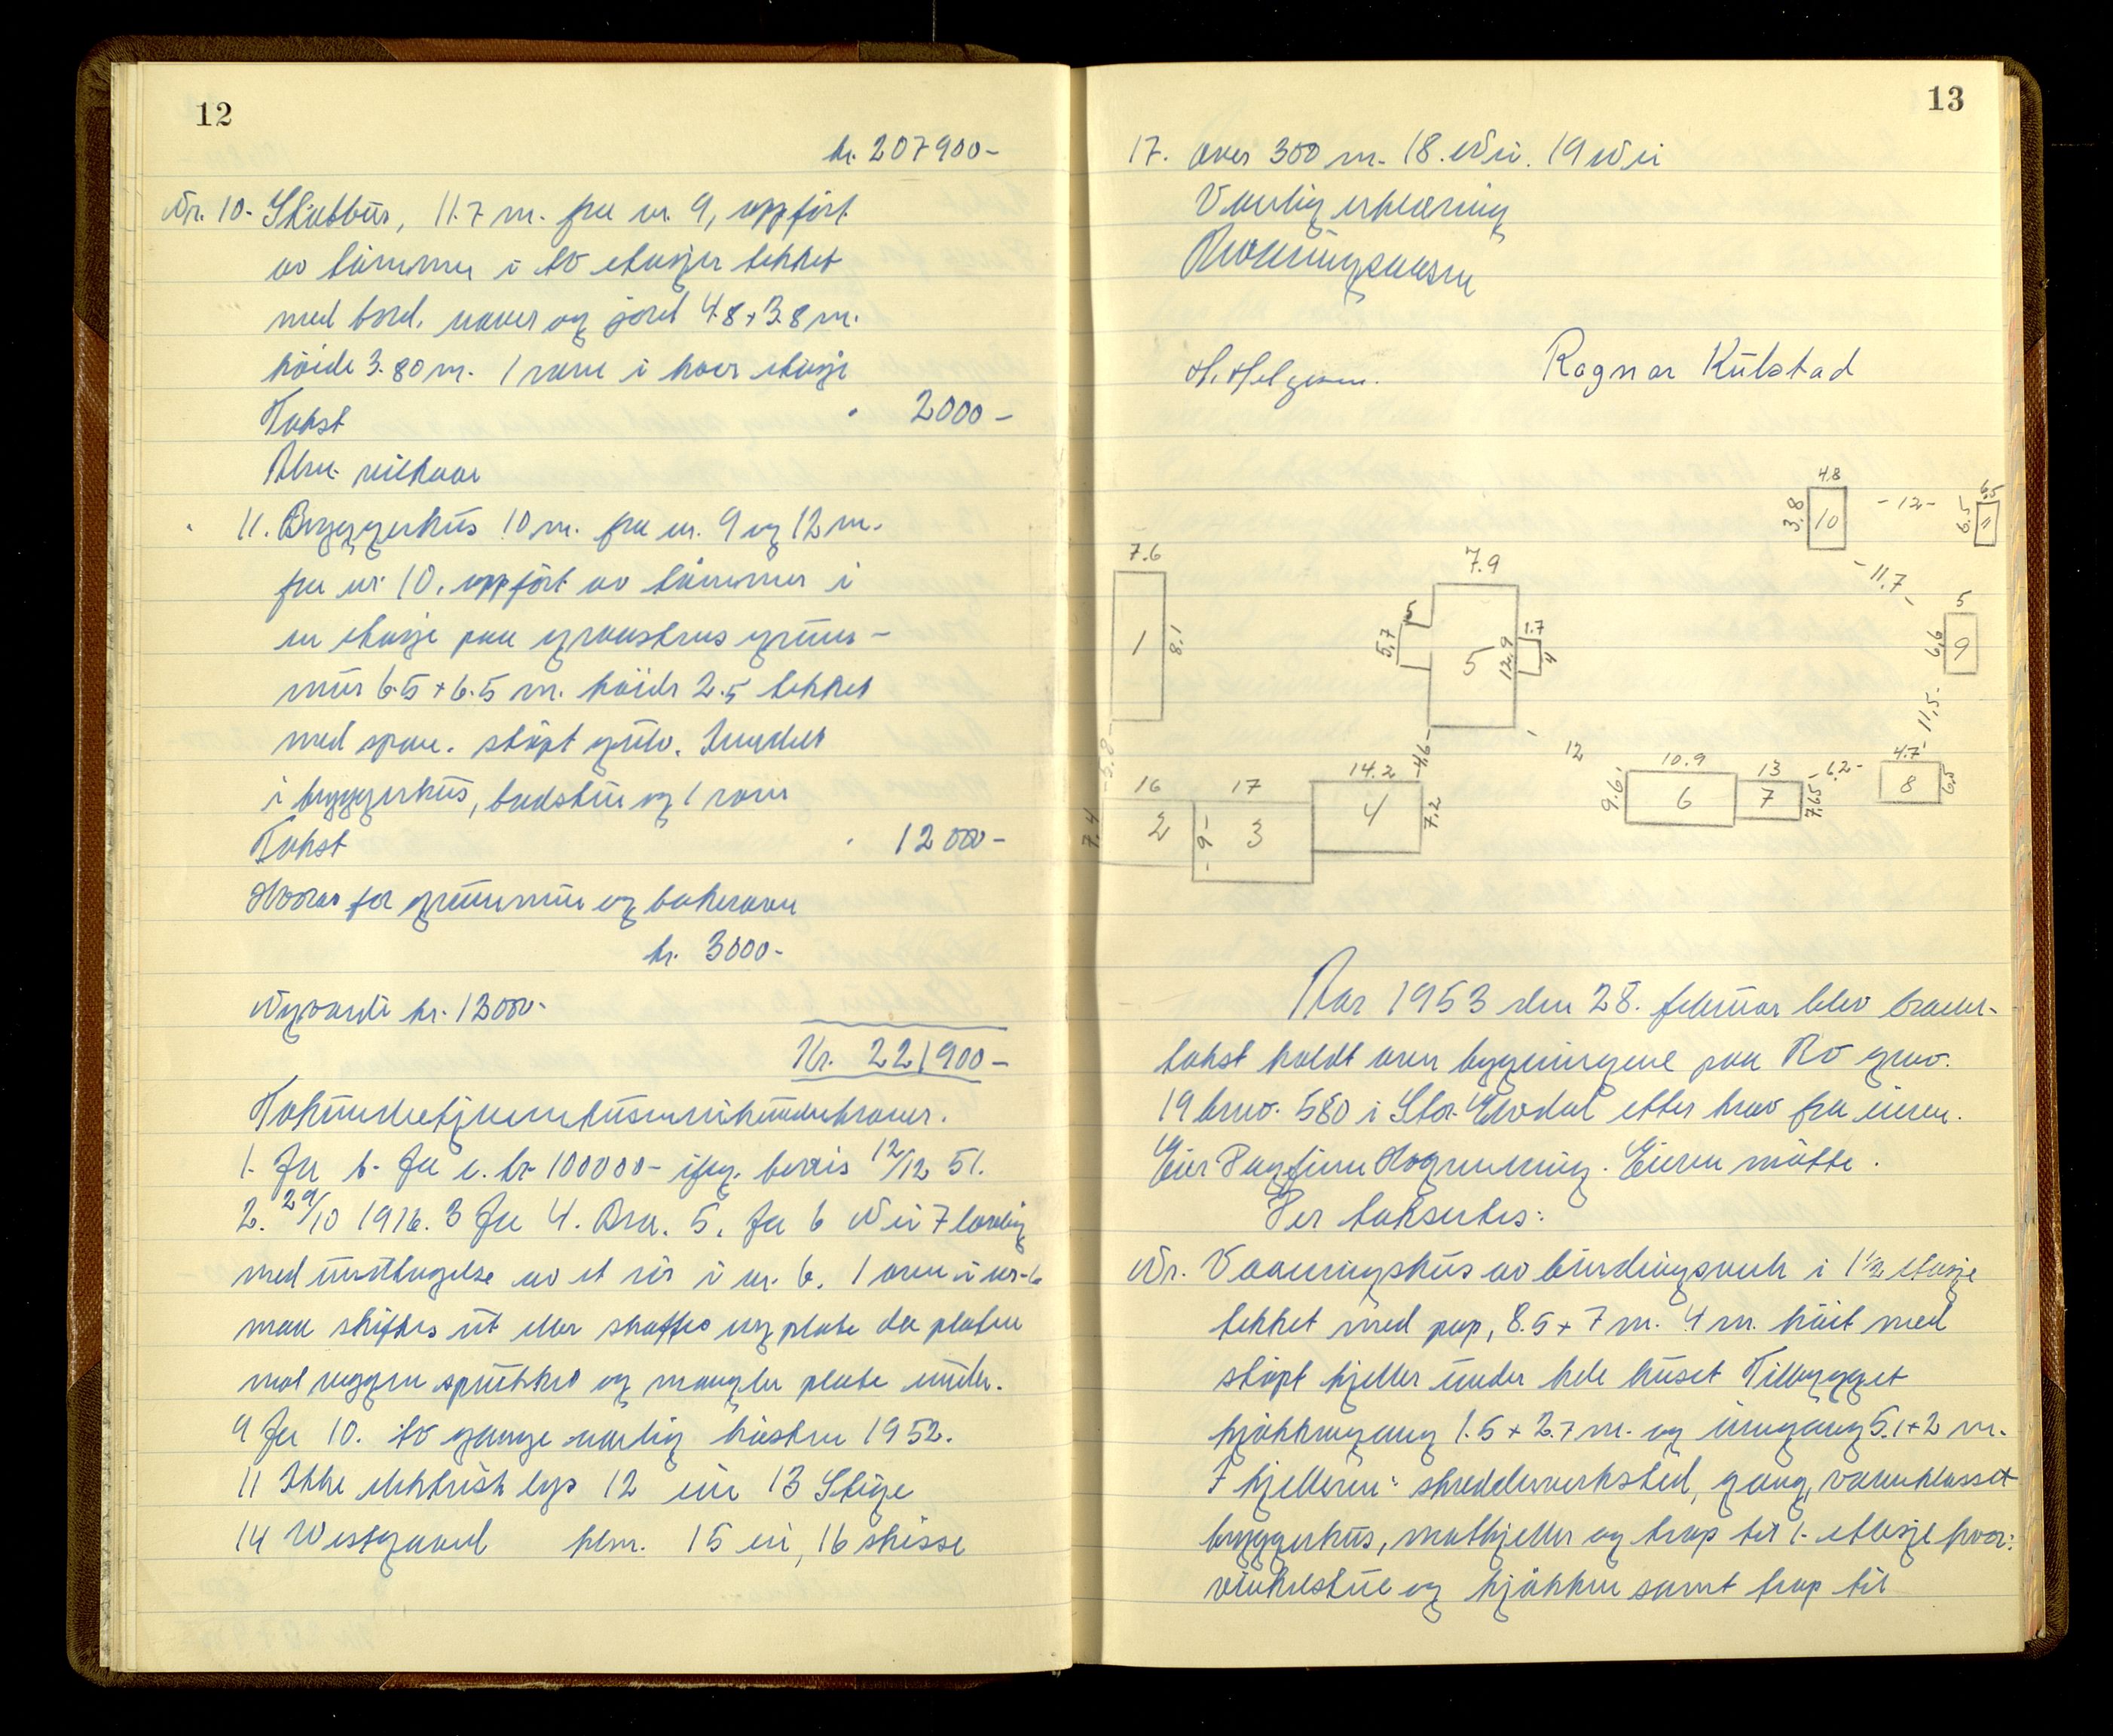 12
kr. 207900-
Nr. 10. Stabbur, 11.7 m. fra nr. 9, oppført
av tømmer i to etasjer tekket
med bord, never og jord 4.8 + 3.8 m.
høide 3.80 m. 1 rom i hver etasje
Takst " 2000-
Alm. vilkaar
" 11. Bryggerhus 10 m. fra nr. 9 og 12 m.
fra nr. 10. oppført av tømmer i
en etasje paa graastens grunn-
mur 6.5 + 6.5 m. høide 2.5 tekket
med spon. støpt gulv. Inndelt
i bryggerhus, badstue og 1 rom
Takst " 12000-
Hvorav for grunnmur og bakerovn
kr. 3000-
Nyverdi kr. 13000-
Kr. 221900-
1. Ja b. Ja c. kr 100000- iføg. bevis 12/12 51.
2. 29/10 1916. 3 Ja 4. Bra. 5. Ja 6 Nei 7 lovlig
med unntagelse av et rør i nr. 6. 1 ovn i nr. 6
maa skiftes ut eller skaffes ny plate da platen
mot veggen sprukket og mangler plate under.
9 Ja 10. to gange aarlig høsten 1952.
11 Ikke elektrisk lys 12 ein 13 Stige
14 Westgaard hlm. 15 ei, 16 skisse
13
17. over 300 m. 18. Nei. 19 Nei
Vanlig erklæring
H. Helgesen. Ragnar Kulstad
4.8
3.8 10 - 12 - 6.5 6.5 11
- 11.7 -
7.6
1 8.1
7.9
5 5.7 5 12.9 1.7 4
5
6.6 9
- 11.5 -
- 3.8 - - 4.6 - 12
16 17 14.2
7.4 2 - 9 - 3 4 7.2
10.9 13 - 6.2 - 4.7
9.6 6 7 7.65 8 6.5
Aar 1953 den 28. februar blev brann-
takst holdt over bygningene paa Ro gnr.
19 brnr. 580 i Stor-Elvdal etter krav fra eieren.
Eier Dagfinn Hogrenning. Eieren møtte.
Der takseres:
Nr. Vaaningshus av bindingsverk i 1 1/2 etasje
tekket med pap, 8.5 + 7 m. 4 m. høit med
støpt kjeller under hele huset Tilbygget
kjøkkengang 1.5 + 2.7 m. og inngang 5.1 + 2 m.
I kjelleren: skredderverksted, gang, vannklosset
bryggerhus, matkjeller og trap til 1. etasje hvor:
vinkelstue og kjøkken samt trap til